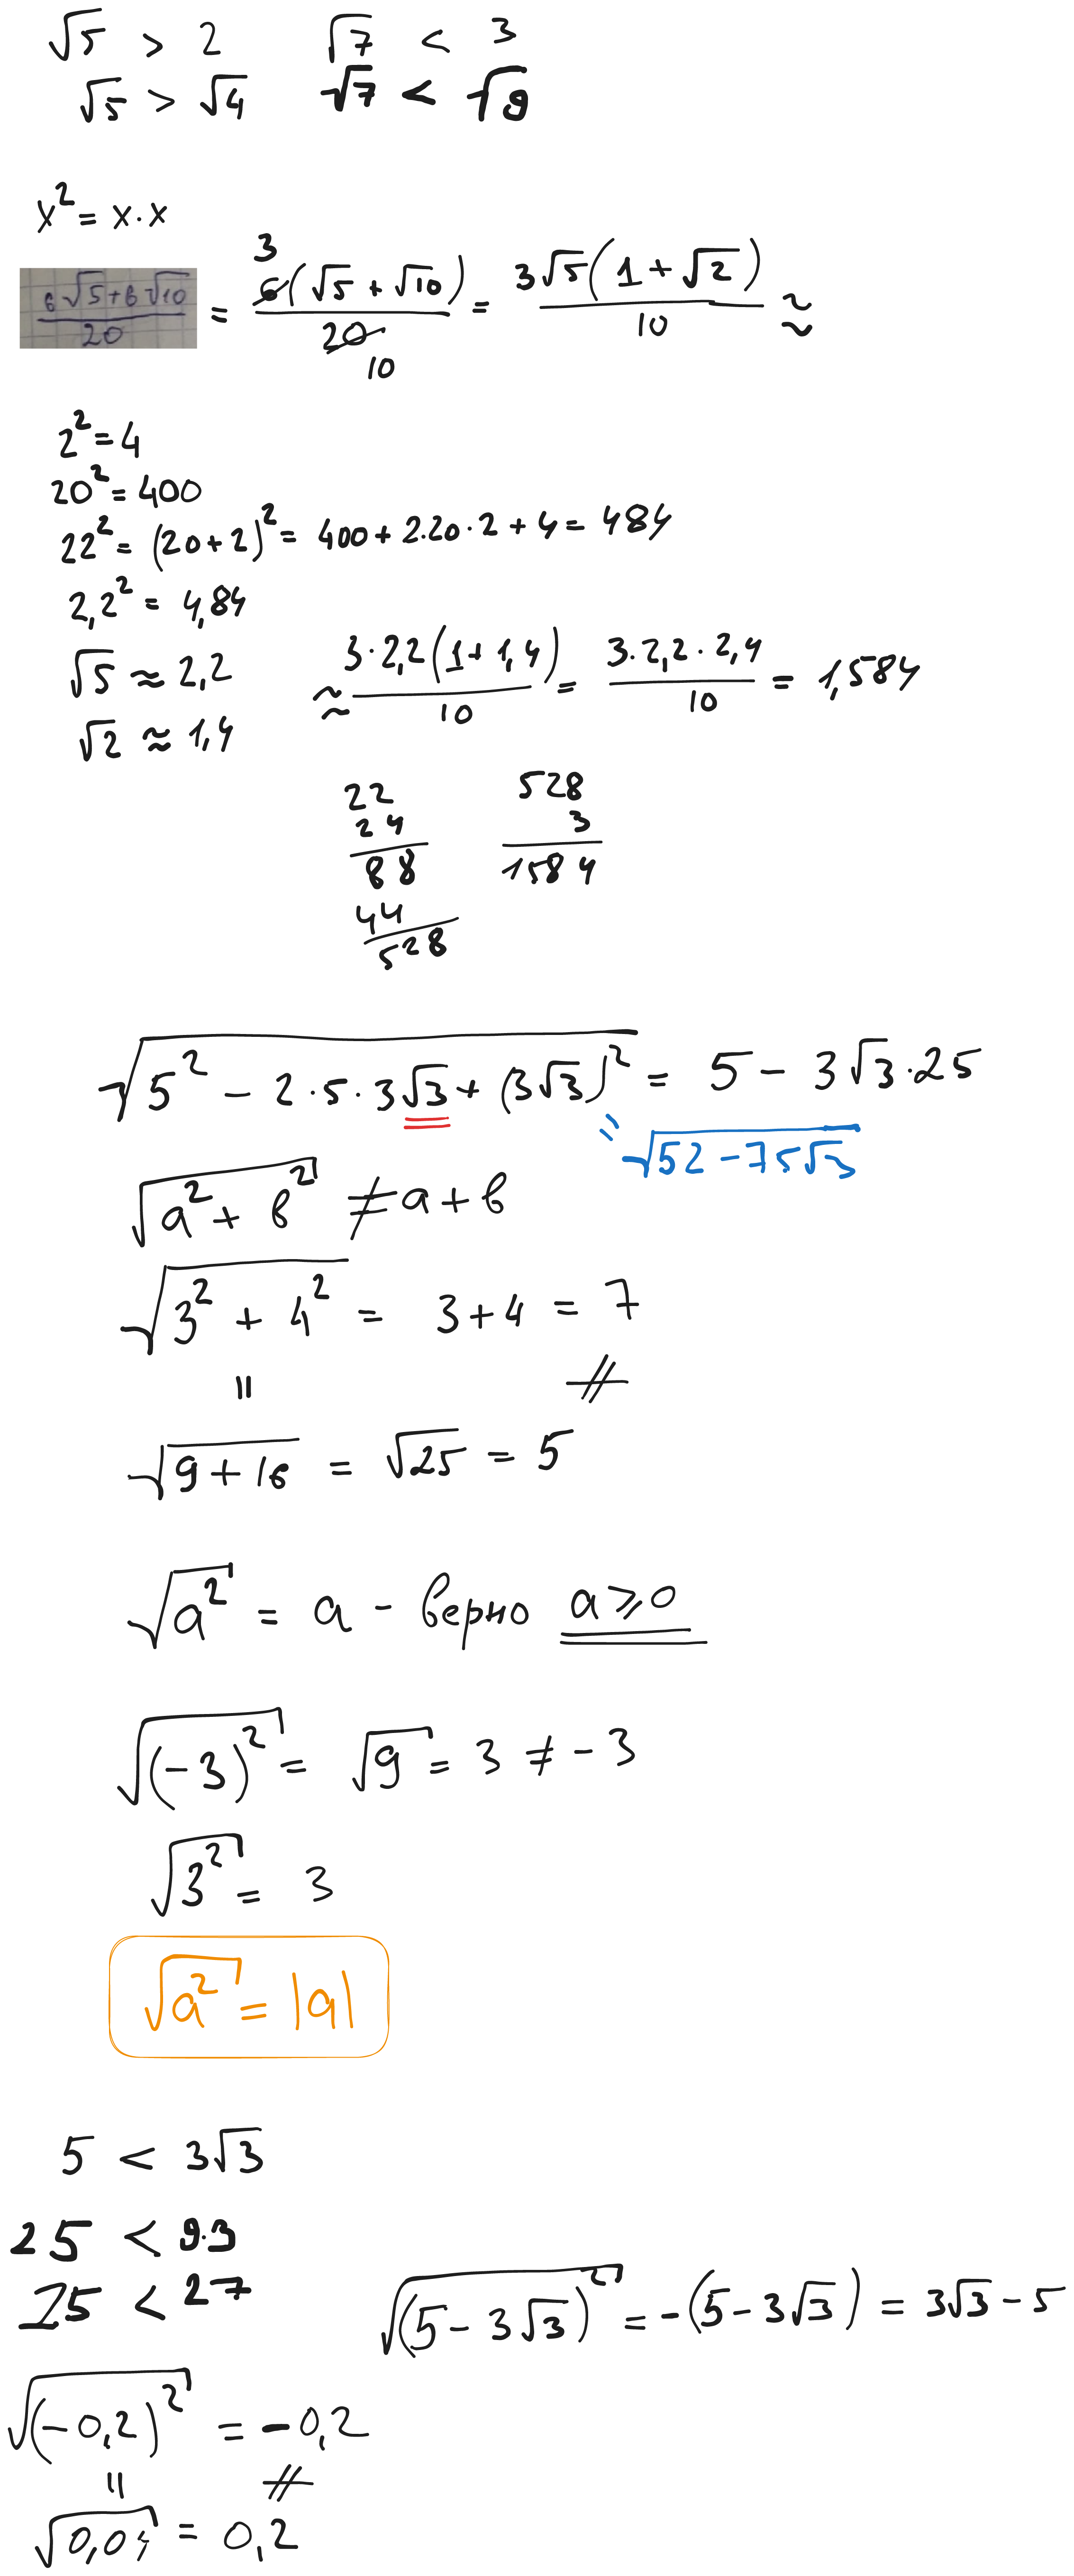 √5 > 2 √7 < 3
√5 > √4 √7 < √9
x² = x·x
(6√5+6√10)/20 = 3 6(√5 + √10)/20 10 = 3√5(1 + √2)/10 ≈
2² = 4
20² = 400
22² = (20+2)² = 400 + 2·20·2 + 4 = 484
2,2² = 4,84
√5 ≈ 2,2 ≈ 3·2,2(1+1,4)/10 = 3·2,2·2,4/10 = 1,584
√2 ≈ 1,4
22 528
24 3
88 1584
44
528
√(5² − 2·5·3√3 + (3√3)²) = 5 − 3√3·25
= √(52 − 75√3)
√(a² + в²) ≠ a + в
√(3² + 4²) = 3 + 4 = 7
= ≠
√(9+16) = √25 = 5
√a² = a - верно a ⩾ 0
√(−3)² = √9 = 3 ≠ −3
√3² = 3
√a² = |a|
5 < 3√3
25 < 9·3
25 < 27
√(5 − 3√3)² = −(5 − 3√3) = 3√3 − 5
√(−0,2)² = −0,2
= ≠
√0,04 = 0,2